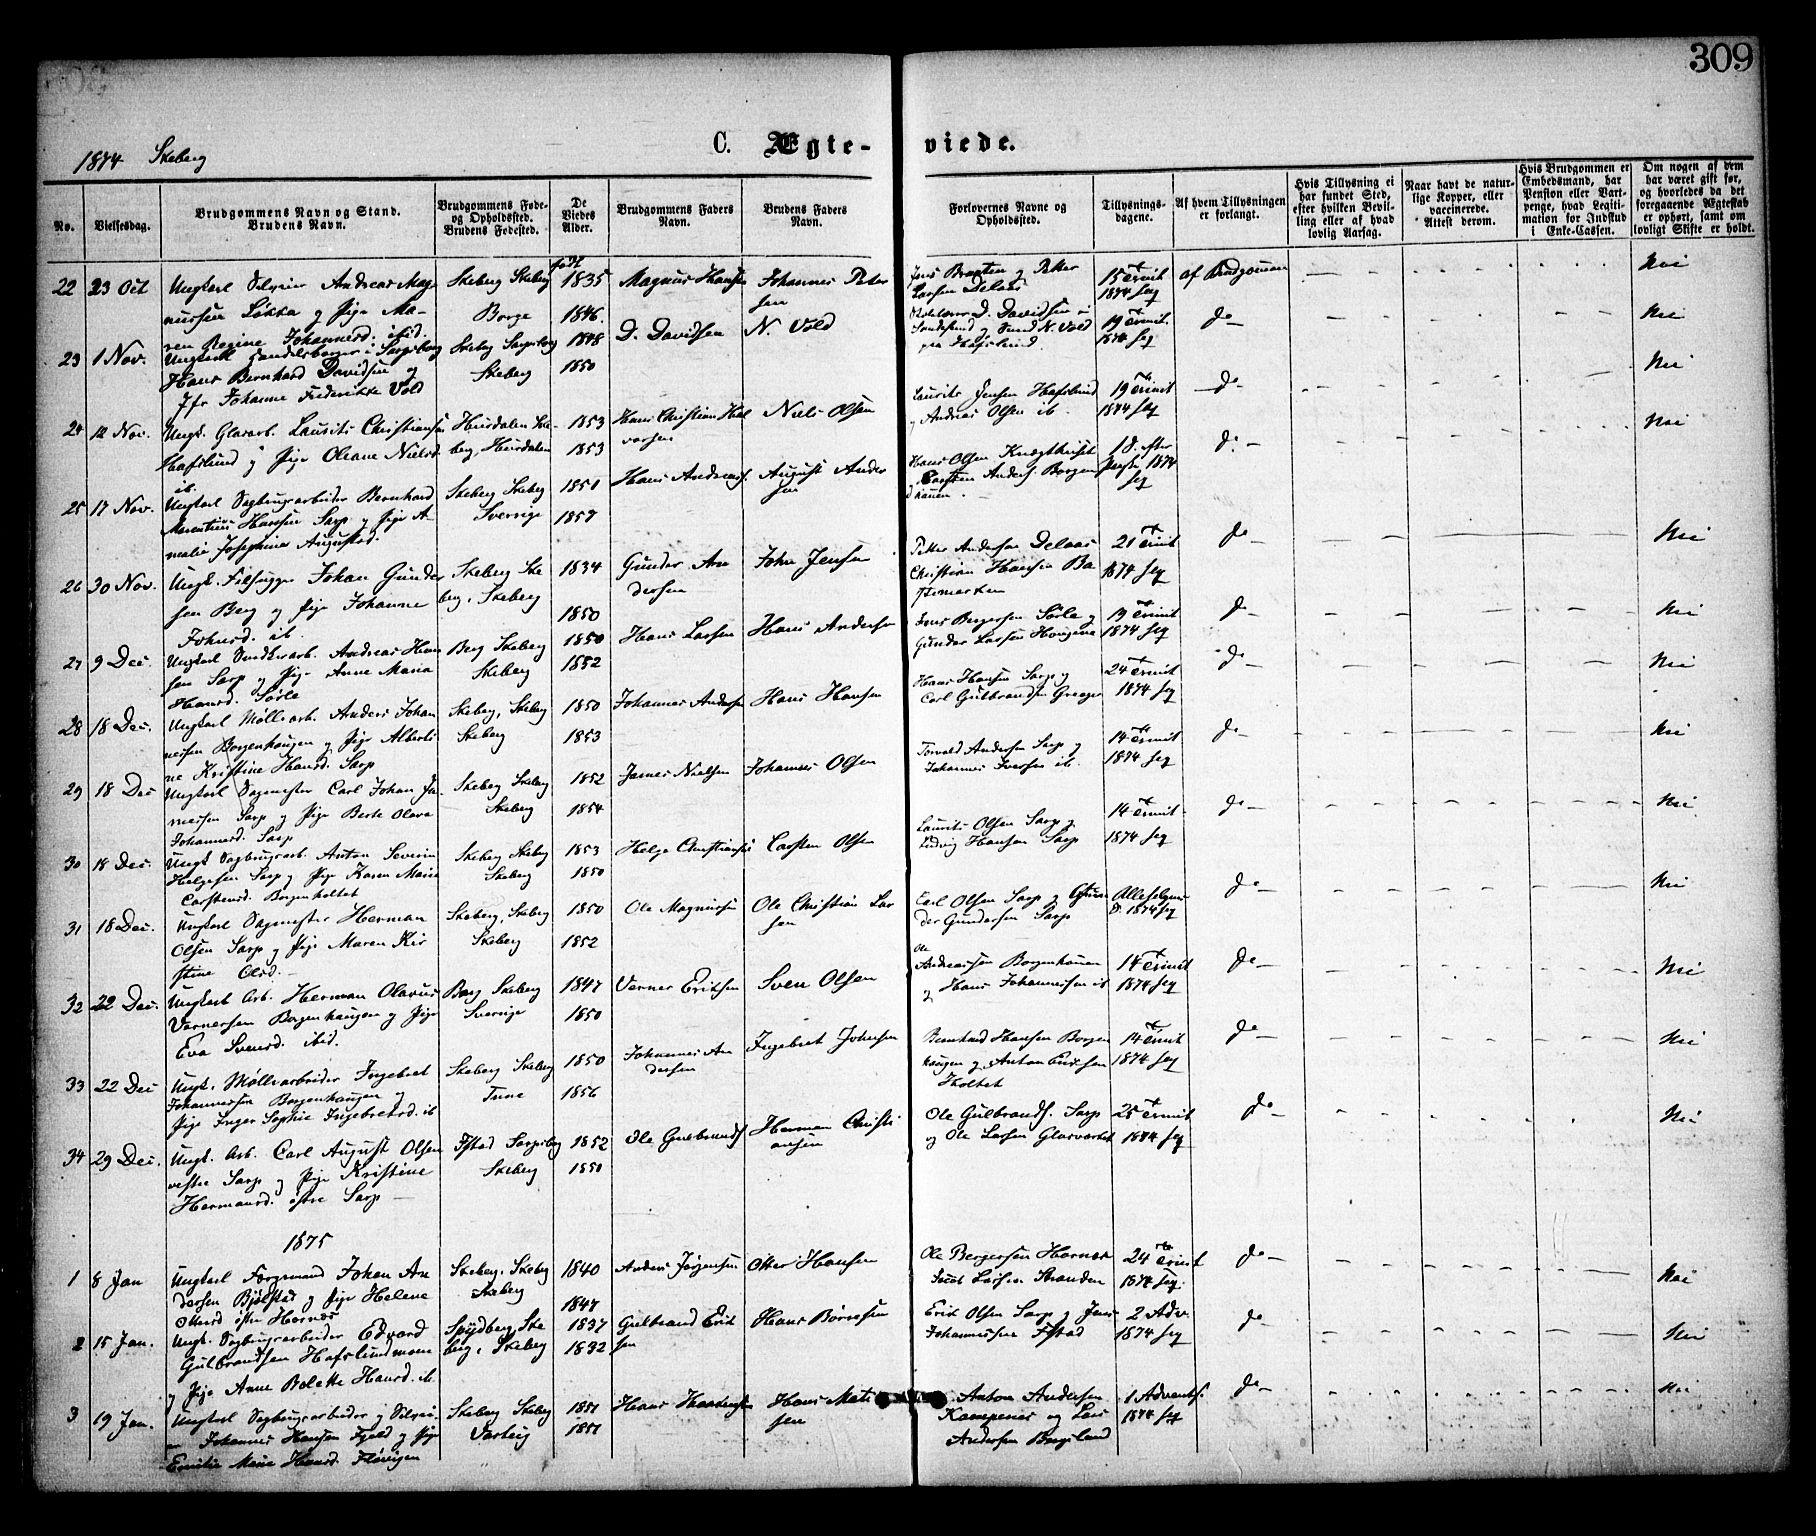 309
1874 Skeberg
C. Ægte-
viede.
No.
Vielsesdag.
Brudgommens Navn og Stand.
Brudens Navn.
Brudgommens Føde-
og Opholdssted.
Brudens Fødested.
De
Viedes
Alder.
Brudgommens Faders
Navn.
Brudens Faders
Navn.
Forlovernes Navne og
Opholdssted.
Tillysnings-
dagene.
Af hvem Tillysningen
er forlangt.
Hvis Tillysning ei
har fundet Sted,
efter hvilken Bevil-
ling eller af hvad
lovlig Aarsag.
Naar havt de natur-
lige Kopper, eller
vaccinerede.
Attest derom.
Hvis Brudgommen er
Embedsmand, har
Pension eller Vart-
penge, hvad Legiti-
mation for Indskud
i Enke-Cassen.
Om nogen af dem
har været gift før,
og hvorledes da det
foregaaende Ægteskab
er ophørt, samt om
lovligt Skifte er holdt.
22 23 Oct Ungkarl Andreas Mag-
nussen Løkka og Pige Ma-
ren Regine Johannesd. ibid.
Skeberg Skeberg
Borge
født 1835
1846
Magnus Hansen
Johannes Peter
sen
Jens Braaten og Petter
Larsen Delaas
15 Trinit
1874 Seg
af Brudgommen
Nei
23 1 Nov. Ungkarl Handelsborger i Sarpsborg
Hans Bernhard Davidsen og
Jfr Johanne Frederikke Vold
Skeberg Sarpsborg
Skeberg
1848
1850
D. Davidsen
N. Vold
D. Davidsen i
Sandesund og N. Vold
paa Hafslund
19 Trinit.
1874 Seg
do
Nei
24 12 Nov. Ungk. Glasarb. Laurits Christiansen
Hafslund og Pige Oleane Nielsd.
ib.
Hurdalen Ske-
berg, Hurdalen
1853
1853
Hans Christian Hal
vorsen
Niels Olsen
Laurits Jensen Hafslund
og Andreas Olsen ib.
19 Trinit
1874 Seg
do
Nei
25 17 Nov. Ungkarl Sagbrugsarbeider Bernhard
Marentius Hansen Sarp og Pige A-
malie Josephine Augustsd.
Skeberg Skeberg
Sverige
1850
1857
Hans Andreas.
August Ander
sen
Hans Olsen
Carsten Anders. Borgen
18. efter
1874
Seg
do
Nei
26 30 Nov. Ungk. Johan Gunder
sen Berg og Pige Johanne
Johnsd. ib.
Skeberg Ske
berg, Skeberg
1834
1850
Gunder An
dersen
John Jensen
Petter Andersen Delaas
Christian Hansen Ba
stemarken
21 Trinit
1874 Seg
do
Nei
27 9 Dec. Ungkarl Andreas Han
sen Sarp og Pige Anne Maria
Hansd. Sørle
Berg Skeberg
Skeberg
1850
1852
Hans Larsen
Hans Andersen
Jens Bergersen Sørle og
Gunder Larsen Hougene
19 Trinit
1874 Seg
do
Nei
28 18 Dec. Ungkarl Møllearb. Anders Johan
nessen Borgenhaugen og Pige Alberti
ne Kristine Hansd. Sarp
Skeberg, Skeberg
Skeberg
1850
1853
Johannes Andersen
Hans Hansen
Hans Hansen Sarp og
Carl Gulbrandsen Greager
24 Trinit
1874 Seg
do
Nei
29 18 Dec Ungkarl Sagmester Carl Johan Ja-
mesen Sarp og Pige Berte Olava
Johannesd. Sarp
Skeberg Skeberg
Skeberg
1852
1854
James Nielsen
Johannes Olsen
Torvald Andersen Sarp og
Johannes Iversen ib.
14 Trinit.
1874 Seg.
do
Nei
30 18 Dec. Ungk Sagbrugsarb. Anton Severin
Helgesen Sarp og Pige Karen Marie
Carstensd. Borgenholtet
Skeberg Skeberg
Skeberg
1853
1850
Helge Christiansen
Carsten Olsen
Laurits Olsen Sarp og
Ludvig Hansen Sarp
14 Trinit.
1874 Seg
do
Nei
31 18 Dec. Ungkarl Sagmester Herman
Olsen Sarp og Pige Maren Kir
stine Olsd.
Skeberg, Skeberg
Skeberg
1850
1852
Ole Magnusen
Ole Christian Lar
sen
Carl Olsen Sarp og Gun
der Gundersen Sarp
Allehelgens
D. 1874 Seg
do
Nei
32 22 Dec. Ungkarl Arb. Herman Olavus
Vernersen Borgenhaugen og Pige
Eva Svensd. ibid.
Berg Skeberg
Sverige
1847
1850
Verner Eriksen
Sven Olsen
Ole
Andreassen Borgenhaugen
og Hans Johannesen ib
14 Trinit
1874 Seg
do
Nei
33 22 Dec Ungk. Møllearbeider Ingebret
Johannessen Borgenhaugen og
Pige Inger Sophie Ingebretsd. ib
Skeberg Skeberg
Tune
1850
1856
Johannes An
dersen
Ingebret Johnsen
Bernhard Hansen Borgen
haugen og Anton Eriksen
Holtet
14 Trinit
1874 Seg
do
Nei
34 29 Dec. Ungk. Arb. Carl August Olsen
vestre Sarp og Pige Kristine
Hermansd. østre Sarp
Istad Sarpsborg
Skeberg
1852
1850
Ole Gulbrands.
Herman Christi
ansen
Ole Gulbrands. Sarp
og Ole Larsen Glasværket
25 Trinit
1874 Seg
do
Nei
1875
1 8 Jan Ungkarl Johan An
dersen Bjølstad og Pige Helene
Ottersd østre Hornes
Skeberg. Skeberg
Skeberg
1840
1847
Anders Jørgensen
Otter Hansen
Ole Bergersen Hornes
Larsen Stranden
24 Trinit
1874 Seg.
do
Nei
2 15 Jan. Ungk. Sagbrugsarbeider Edvard
Gulbrandsen Hafslundmoen
og Pige Anne Belette Hansd. ib
Spydberg Ske
berg, Skeberg
1837
1832
Gulbrand Erik
sen
Hans Børnsen
Erik Olsen Sarp og Jens
Johannessen Istad
2 Adv.
1874 Seg
do
Nei
3 19 Jan. Ungkarl Sagbrugsarbeider
Johannes Hansen Fjeld og Pige
Emilie Marie Hansd.
Skeberg Skeberg
Varteig
1851
1851
Hans
Hans Mati
sen
Anton Andersen
Kampenes og Lars
Andersen Bergsland
1 Advents.
1874 Seg
do
Nei